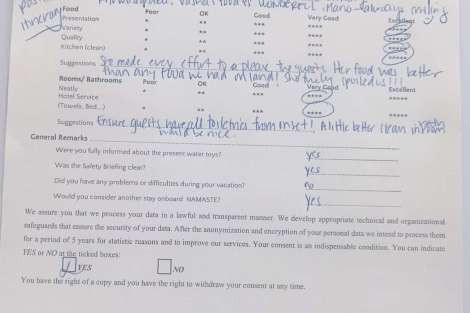 wonderful. Mario - always smiling
itinerary
Food Poor OK Good Very Good Excellent
Presentation * ** *** **** *****
Variety * ** *** **** *****
Quality * ** *** **** *****
Kitchen (clean) * ** *** **** *****
Suggestions She made every effort to please the guests. Her food was better
than any food we had on land! She truly spoiled us!!!
Rooms/ Bathrooms Poor OK Good Very Good Excellent
Neatly * ** *** **** *****
Hotel Service
(Towels, Bed...) * ** *** **** *****
Suggestions Ensure guests have all toiletries from onset! A little better clean in
would be nice.
General Remarks
Were you fully informed about the present water toys? yes
Was the Safety Briefing clear? yes
Did you have any problems or difficulties during your vacation? no
Would you consider another stay onboard NAMASTE? yes
We assure you that we process your data in a lawful and transparent manner. We develop appropriate technical and organizational
safeguards that ensure the security of your data. After the anonymization and encryption of your personal data we intend to process them
for a period of 5 years for statistic reasons and to improve our services. Your consent is an indispensable condition. You can indicate
YES or NO at the ticked boxes:
YES NO
You have the right of a copy and you have the right to withdraw your consent at any time.